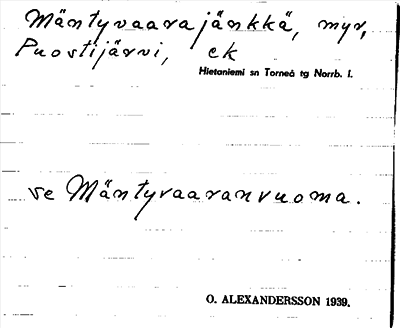 Mäntyvaarajänkkä, myr,
Puostijärvi, ek
Hietaniemi sn Torneå tg Norrb. l.
se Mäntyvaaranvuoma.
O. ALEXANDERSSON 1939.